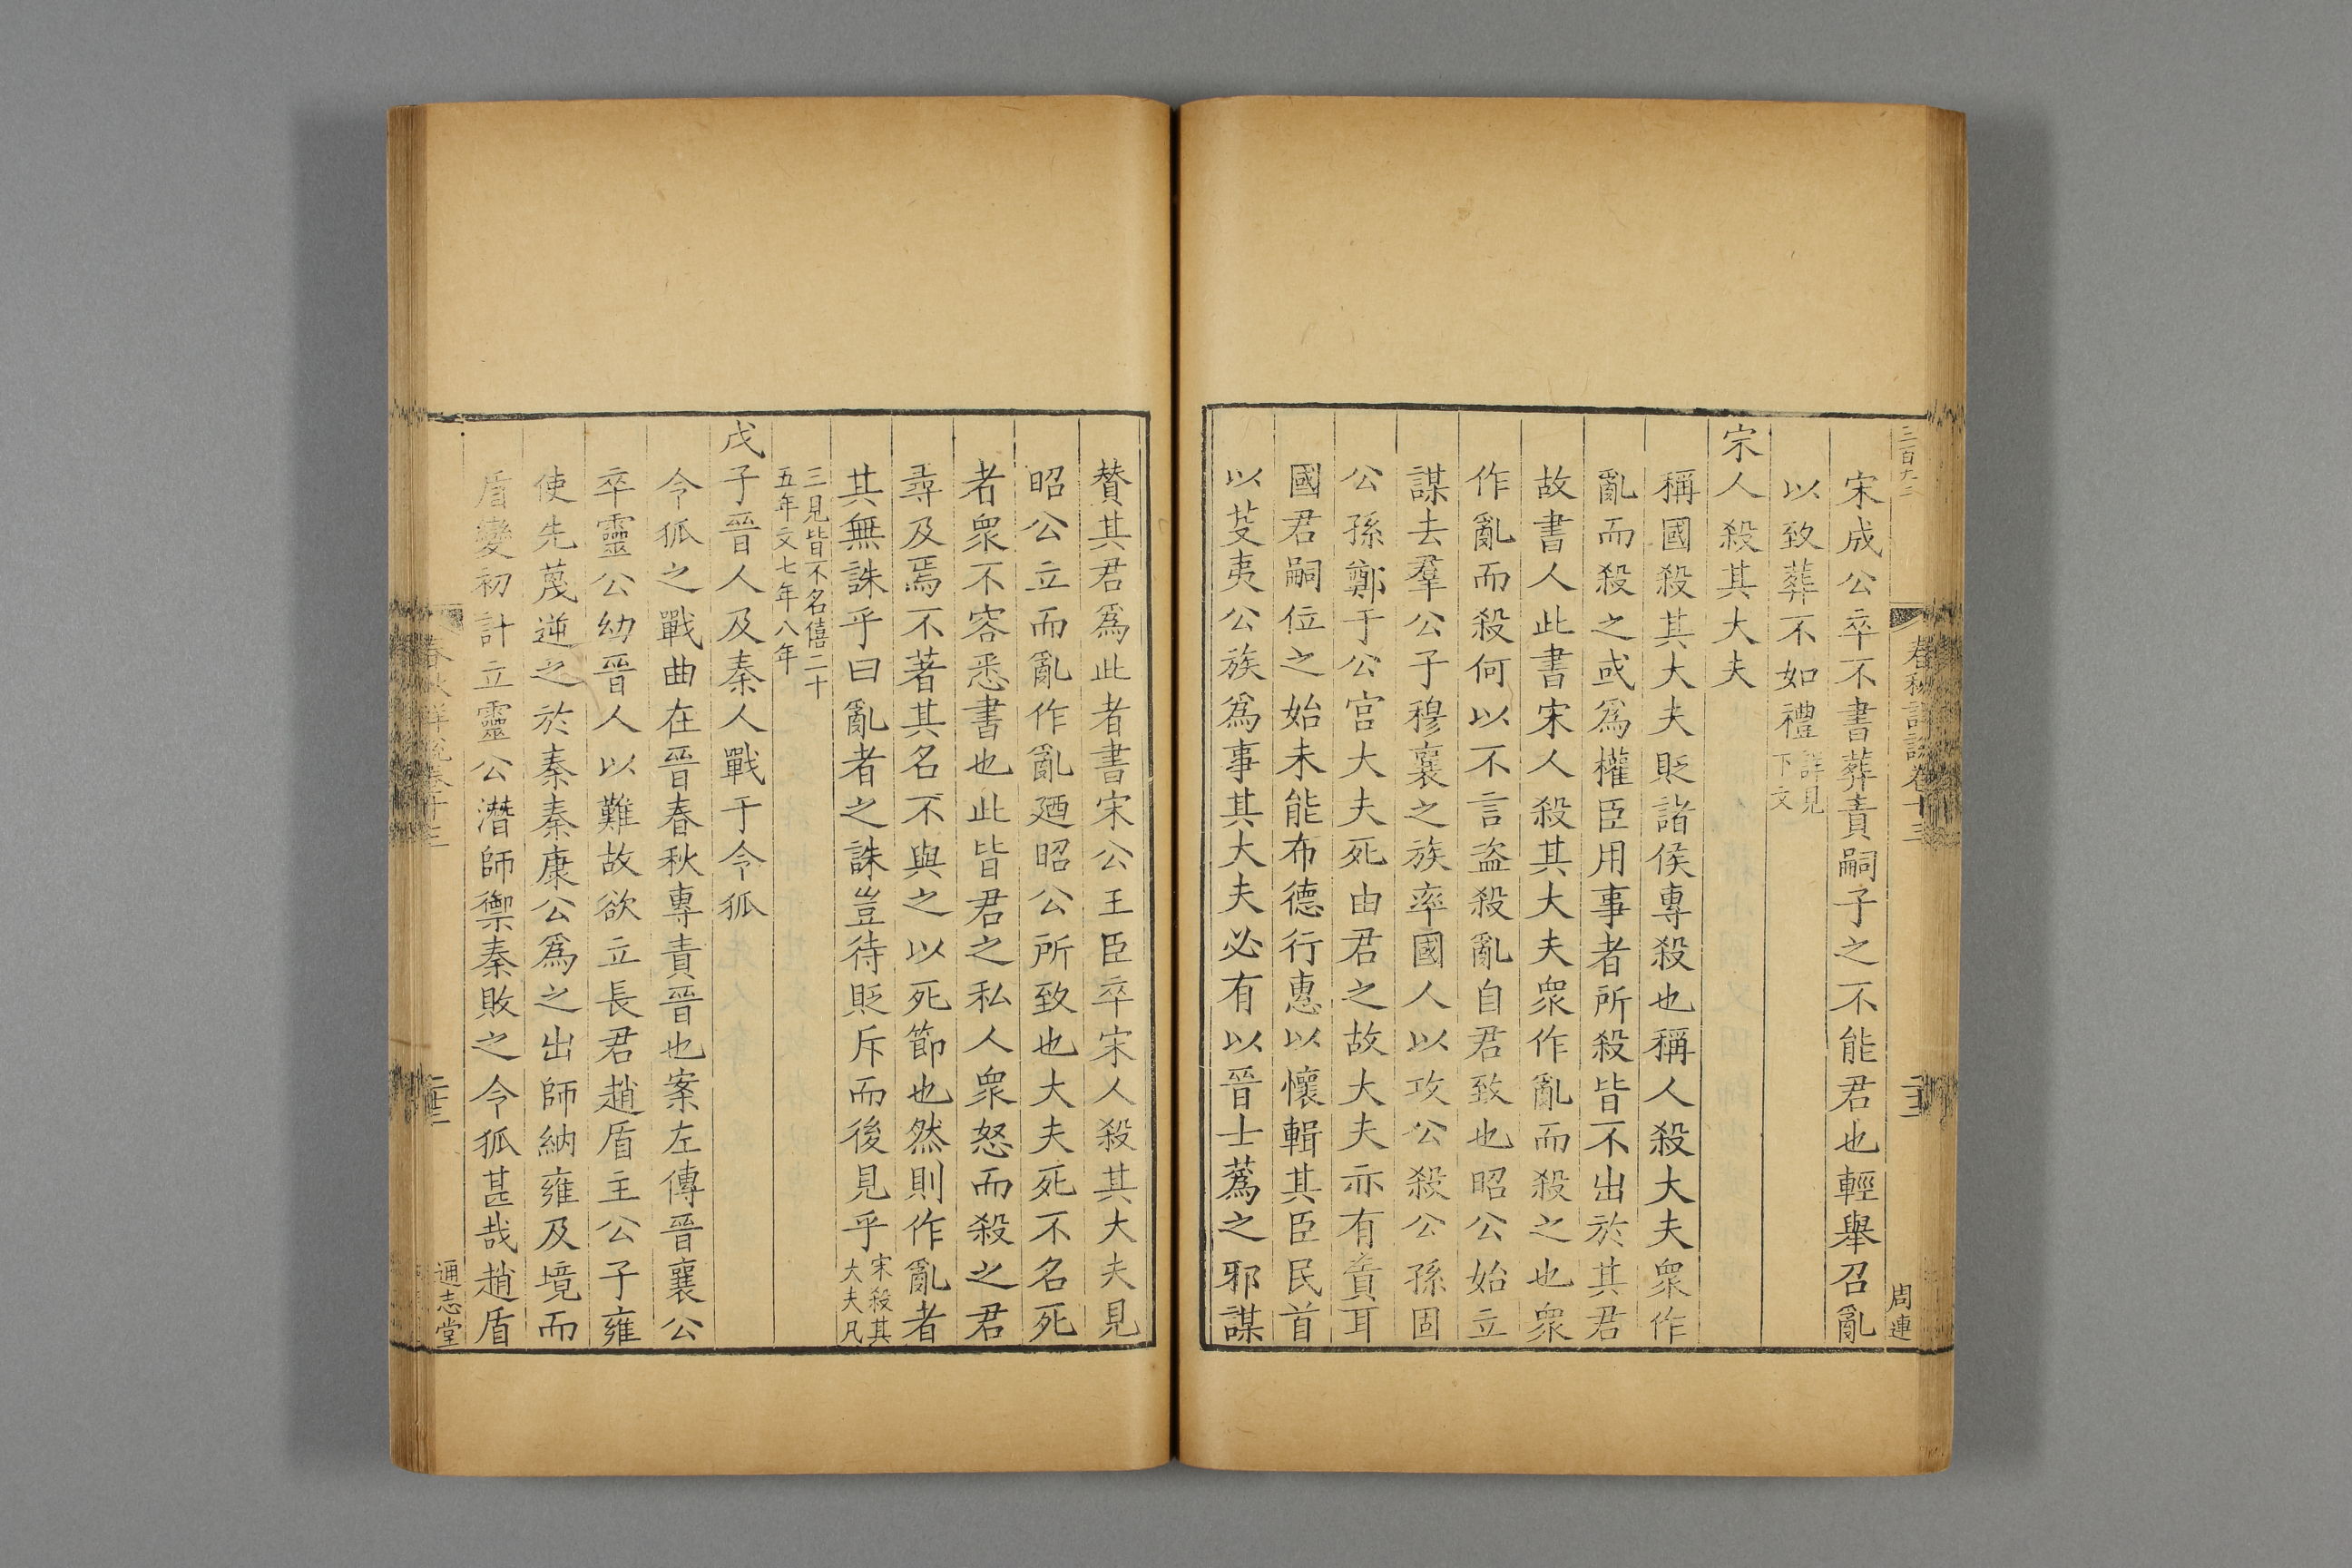 三百九二
春秋詳說卷十三
周連
宋成公卒不書葬責嗣子之不能君也輕舉召亂
以致葬不如禮詳見下文
宋人殺其大夫
稱國殺其大夫貶諸侯專殺也稱人殺大夫衆作
亂而殺之或爲權臣用事者所殺皆不出於其君
故書人此書宋人殺其大夫衆作亂而殺之也衆
作亂而殺何以不言盜殺亂自君致也昭公始立
謀去羣公子穆襄之族率國人以攻公殺公孫固
公孫鄭于公宮大夫死由君之故大夫亦有責耳
國君嗣位之始未能布德行惠以懷輯其臣民首
以芟夷公族爲事其大夫必有以晉士蔿之邪謀
賛其君爲此者書宋公王臣卒宋人殺其大夫見
昭公立而亂作亂廼昭公所致也大夫死不名死
者衆不容悉書也此皆君之私人衆怒而殺之君
尋及焉不著其名不與之以死節也然則作亂者
其無誅乎曰亂者之誅豈待貶斥而後見乎宋殺其大夫凡
三見皆不名僖二十五年文七年八年
戊子晉人及秦人戰于令狐
令狐之戰曲在晉春秋專責晉也案左傳晉襄公
卒靈公幼晉人以難故欲立長君趙盾主公子雍
使先蔑逆之於秦秦康公爲之出師納雍及境而
盾變初計立靈公潛師禦秦敗之令狐甚哉趙盾
春秋詳說卷十三
通志堂